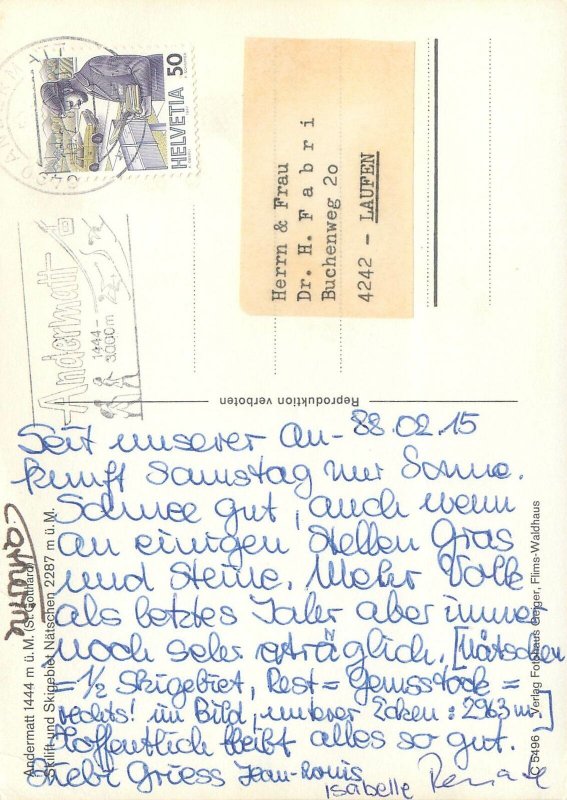 HELVETIA 50
Andermatt
1444-
3000 m
Herrn & Frau
Dr. H. Fabri
Buchenweg 2o
4242 - LAUFEN
Reproduktion verboten
88.02.15
Seit unserer An-
kunft Samstag nur Sonne.
Schnee gut, auch wenn
an einigen Stellen Gras
und Steine. Mehr Volk
als letztes Jahr aber immer
noch sehr erträglich. [Nätschen
= 1/2 Skigebiet, Rest = Gemsstock =
rechts! im Bild, unterer Ecken: 2963 m]
Hoffentlich bleibt alles so gut.
Liebi Griess Jean-Louis
Isabelle Renate
Catherine
Andermatt 1444 m ü. M. (St. Gotthard)
Skilift und Skigebiet Nätschen 2287 m ü. M.
C 5496 Verlag Fotohaus Geiger, Flims-Waldhaus